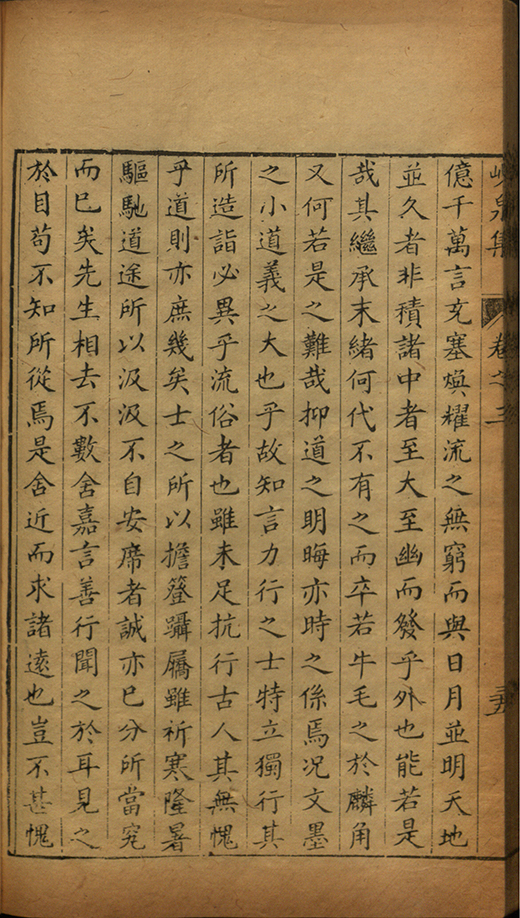 峴泉集 卷之二 五
億千萬言充塞煥耀流之無窮而與日月並明天地
並久者非積諸中者至大至幽而發乎外也能若是
哉其繼承末緒何代不有之而卒若牛毛之於麟角
又何若是之難哉抑道之明晦亦時之係焉况文墨
之小道義之大也乎故知言力行之士特立獨行其
所造詣必異乎流俗者也雖未足抗行古人其無愧
乎道則亦庶幾矣士之所以擔簦躡屩雖祈寒隆暑
驅馳道途所以汲汲不自安席者誠亦巳分所當究
而巳矣先生相去不數舍嘉言善行聞之於耳見之
於目苟不知所從焉是舍近而求諸遠也豈不甚愧